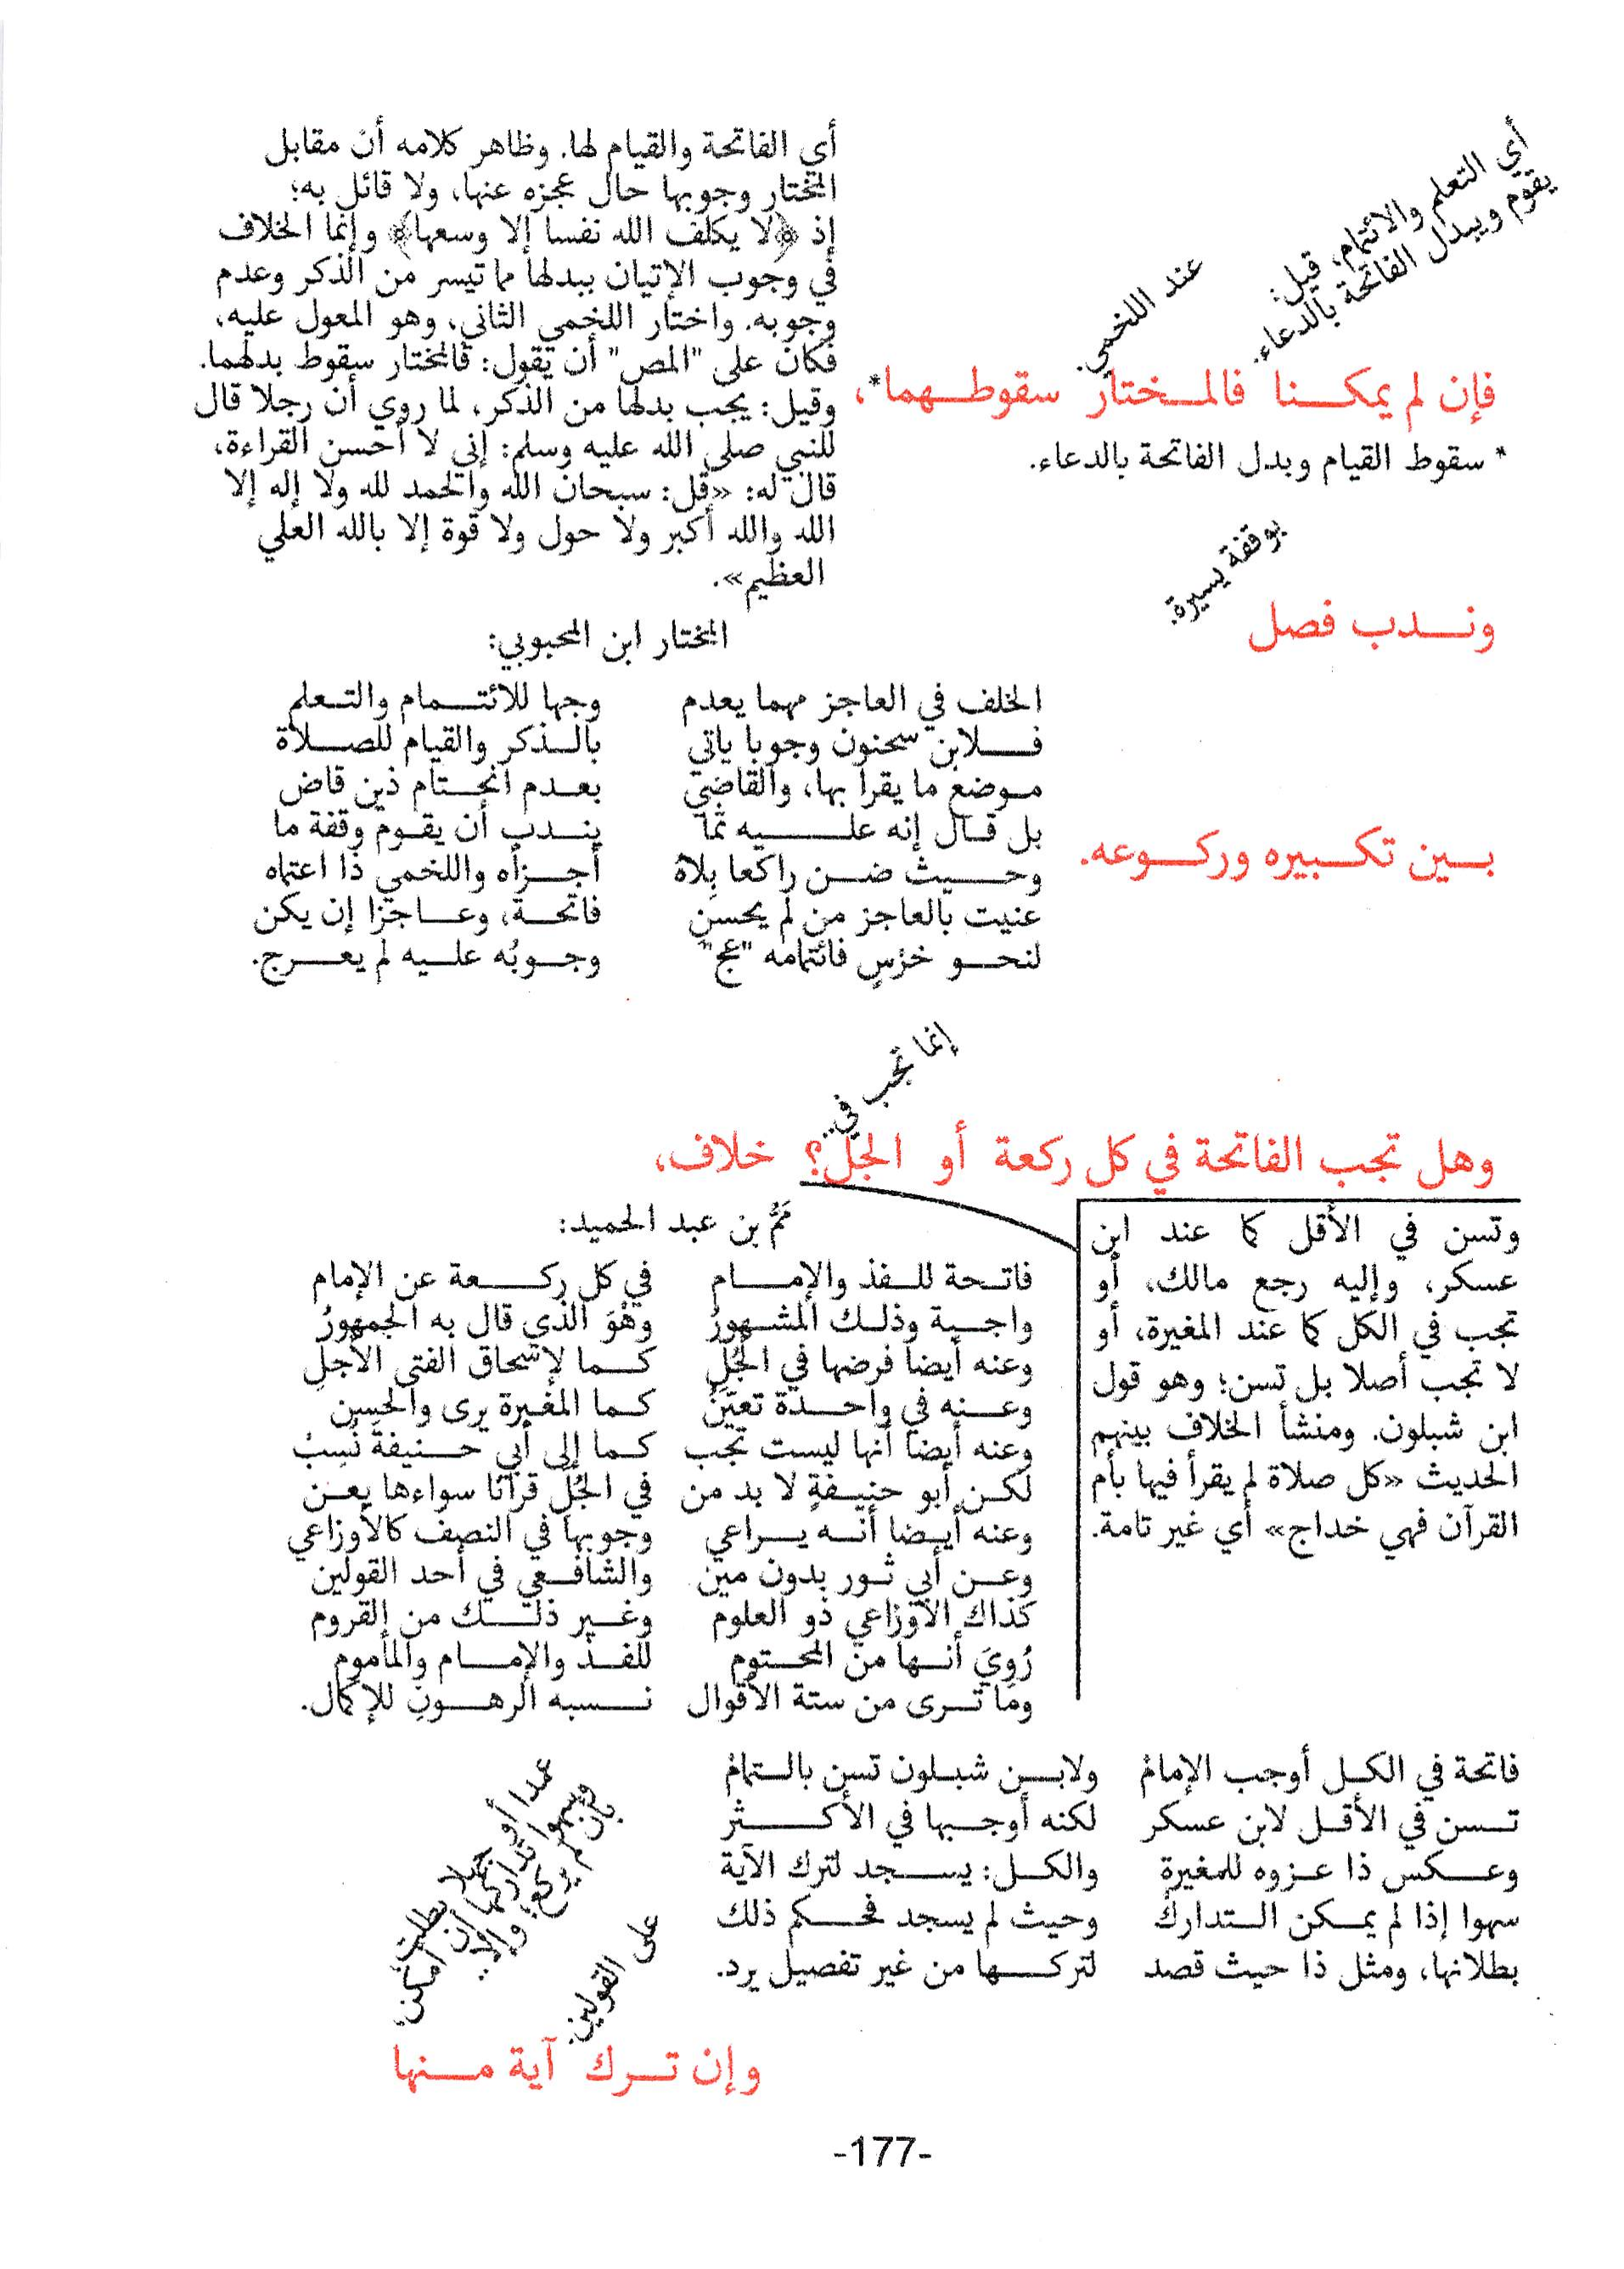 أي التعلم والائتمام، قيل:
يقوم ويبدل الفاتحة بالدعاء.
عند اللخمي.
فإن لم يمكنا فالمختار سقوطهما*،
* سقوط القيام وبدل الفاتحة بالدعاء.
أي الفاتحة والقيام لها. وظاهر كلامه أن مقابل
المختار وجوبها حال عجزه عنها، ولا قائل به؛
إذ ﴿لا يكلف الله نفسا إلا وسعها﴾ وإنما الخلاف
في وجوب الإتيان ببدلها مما تيسر من الذكر وعدم
وجوبه. واختار اللخمي الثاني، وهو المعول عليه،
فكان على "المص" أن يقول: فالمختار سقوط بدلهما.
وقيل: يجب بدلها من الذكر، لما روي أن رجلا قال
للنبي صلى الله عليه وسلم: إني لا أحسن القراءة،
قال له: «قل: سبحان الله والحمد لله ولا إله إلا
الله والله أكبر ولا حول ولا قوة إلا بالله العلي
العظيم».
بوقفة يسيرة.
وندب فصل
المختار ابن المحبوبي:
الخلف في العاجز مهما يعدم وجها للائتمام والتعلم
فلابن سحنون وجوبا ياتي بالذكر والقيام للصلاة
موضع ما يقرا بها، والقاضي بعدم انحتام ذين قاض
بل قال إنه عليه ثما يندب أن يقوم وقفة ما
وحيث ضن راكعا بِلاهُ أجزأه واللخمي ذا اعتماه
عنيت بالعاجز من لم يحسن فاتحة، وعاجزا إن يكن
لنحو خرْسٍ فائتمامه "عج" وجوبُه عليه لم يعرج.
بين تكبيره وركوعه.
إنما تجب في..
وهل تجب الفاتحة في كل ركعة أو الجل؟ خلاف،
وتسن في الأقل كما عند ابن
عسكر، وإليه رجع مالك، أو
تجب في الكل كما عند المغيرة، أو
لا تجب أصلا بل تسن؛ وهو قول
ابن شبلون. ومنشأ الخلاف بينهم
الحديث «كل صلاة لم يقرأ فيها بأم
القرآن فهي خداج» أي غير تامة.
مَمُّ بن عبد الحميد:
فاتحة للفذ والإمام في كل ركعة عن الإمام
واجبة وذلك المشهورُ وهْوَ الذي قال به الجمهورُ
وعنه أيضا فرضها في الجُلِّ كما لإسحاق الفتى الأجلِ
وعنه في واحدة تعيّنُ كما المغيرة يرى والحسن
وعنه أيضا أنها ليست تجب كما إلى أبي حنيفةَ نُسِبْ
لكن أبو حنيفةٍ لا بد من في الجُلِّ قرآنا سواءها يعن
وعنه أيضا أنه يراعي وجوبها في النصف كالأوزاعي
وعن أبي ثور بدون مين والشافعي في أحد القولين
كذاك الاوزاعي ذو العلوم وغير ذلك من القروم
رُوِيَ أنها من المحتوم للفذ والإمام والمأموم
وما ترى من ستة الأقوال نسبه الرهون للإكمال.
فاتحة في الكل أوجب الإمامْ ولابن شبلون تسن بالتمامْ
تسن في الأقل لابن عسكر لكنه أوجبها في الأكثر
وعكس ذا عزوه للمغيرة والكل: يسجد لترك الآية
سهوا إذا لم يمكن التدارك وحيث لم يسجد فحكم ذلك
بطلانها، ومثل ذا حيث قصد لتركها من غير تفصيل يرد.
عمدا أو جهلا بطلت،
وسهوا تداركها أن أمكن؛
بأن لم يركع، وإلا..
على القولين.
وإن ترك آية منها
-177-